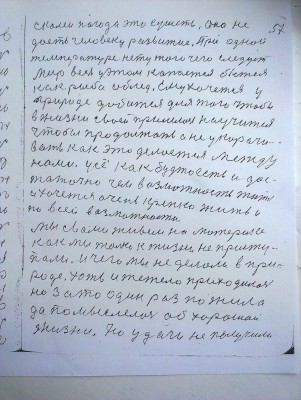 57
с вами погода это сушсть. Она не
даеть человеку развитие. При одной
температуре нету того чего следует
Мир весь в этом купается бьется
как риба облед. Ему хочется у
природе добится для того чтобы
в жизни своей пришлось научится
чтобы продолжать а не укорачи-
вать как это делается между
нами. усё как будто есть и дос-
таточно чем возможность жить
и хочется очень крепко жить и
по всей возможности.
Мы с вами живем на материке
как мы только к жизни не присту-
пали. и чего мы не делали в при-
роде. хоть и тяжело приходилось
но за то один раз пожила
да помыслелось об хорошой
жизни. Но удачи не получили